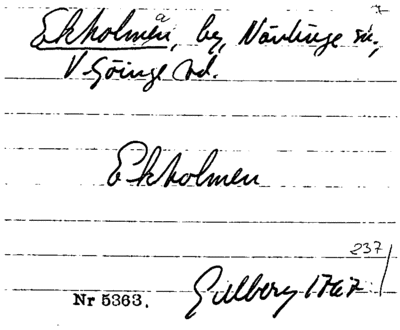 Ekholmen, by, Nävlinge sn.,
V. Göinge hd.
Ekholmen
237
Gillberg 1767
Nr 5363.